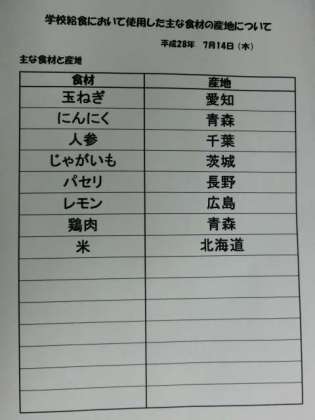 学校給食において使用した主な食材の産地について
平成28年 7月14日（木）
主な食材と産地
食材 産地
玉ねぎ 愛知
にんにく 青森
人参 千葉
じゃがいも 茨城
パセリ 長野
レモン 広島
鶏肉 青森
米 北海道